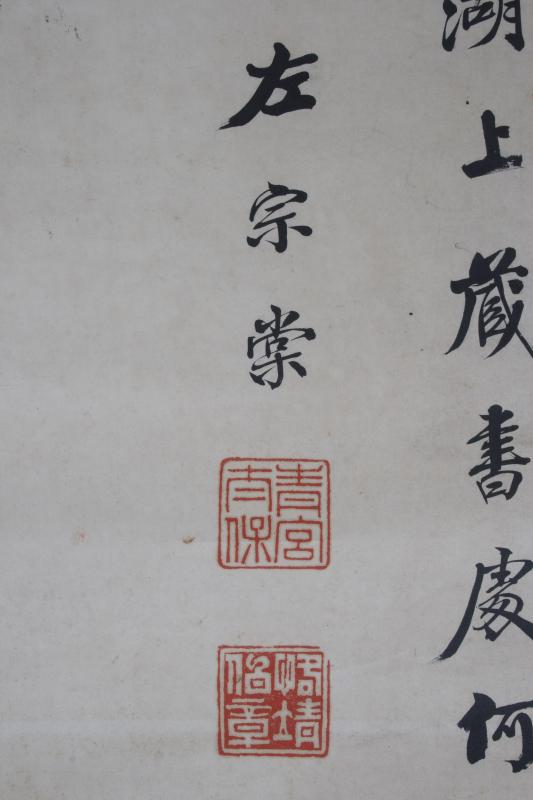 湖上藏書處何
左宗棠
青宮太保
恪靖伯章